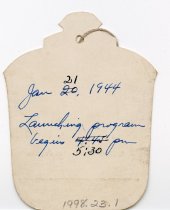 21
Jan 20, 1944
Launching program
begins 4:45 pm
5:30
1998.23.1